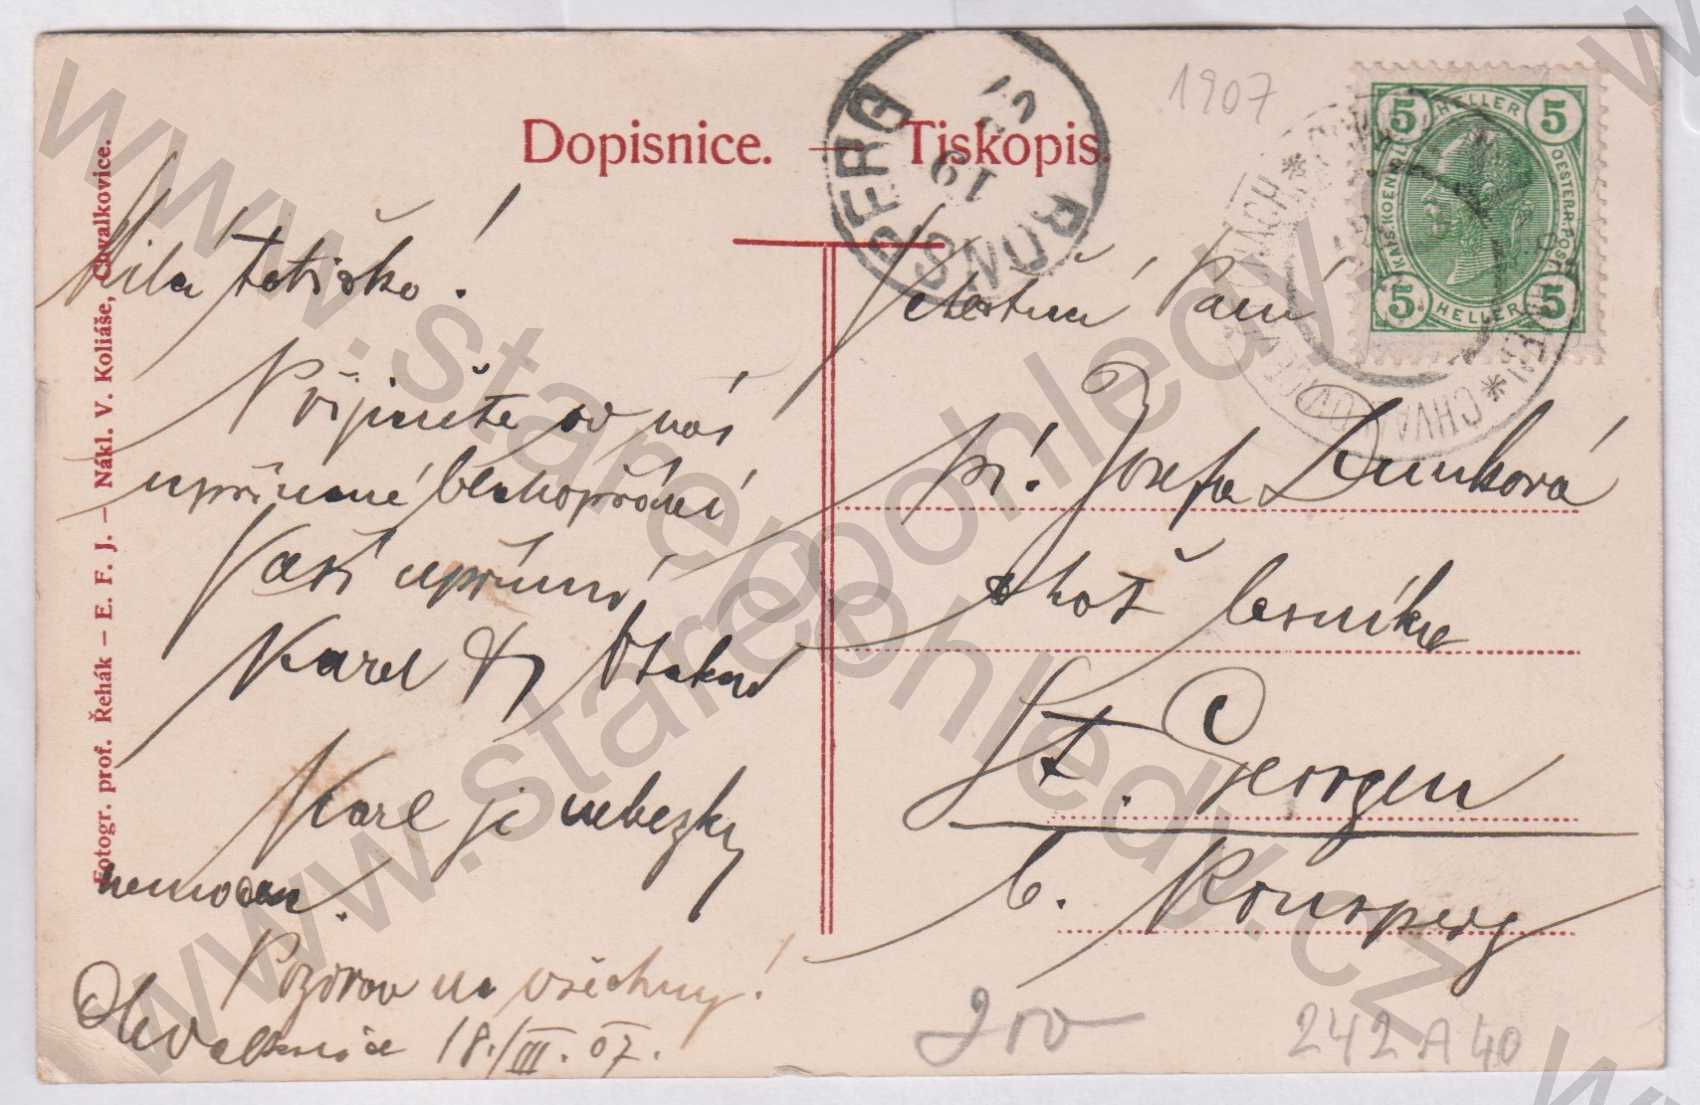 Dopisnice. — Tiskopis.
1907
5 HELLER 5
KAIS. KOENIGL.
OESTERR. POST
5 HELLER 5
RONSPERG
19
07
* CHVALKOVICE
Fotogr. prof. Řehák – E. F. J. – Nákl. V. Koliáše, Chvalkovice.
Milá tetičko!
Přijměte od nás
upřímné blahopřání
Vaši upřímní
Karel & Otakar
Karel je nebezky
nemocen.
Pozdrav na všechny!
Chvalkovice 18./III. 07.
Velectěná Paní
pí. Josefa Dunková
choť lesníka
St. Georgen
b. Ronsperg
200
242 A 40
www.starepohledy.cz
www.starepohledy.cz